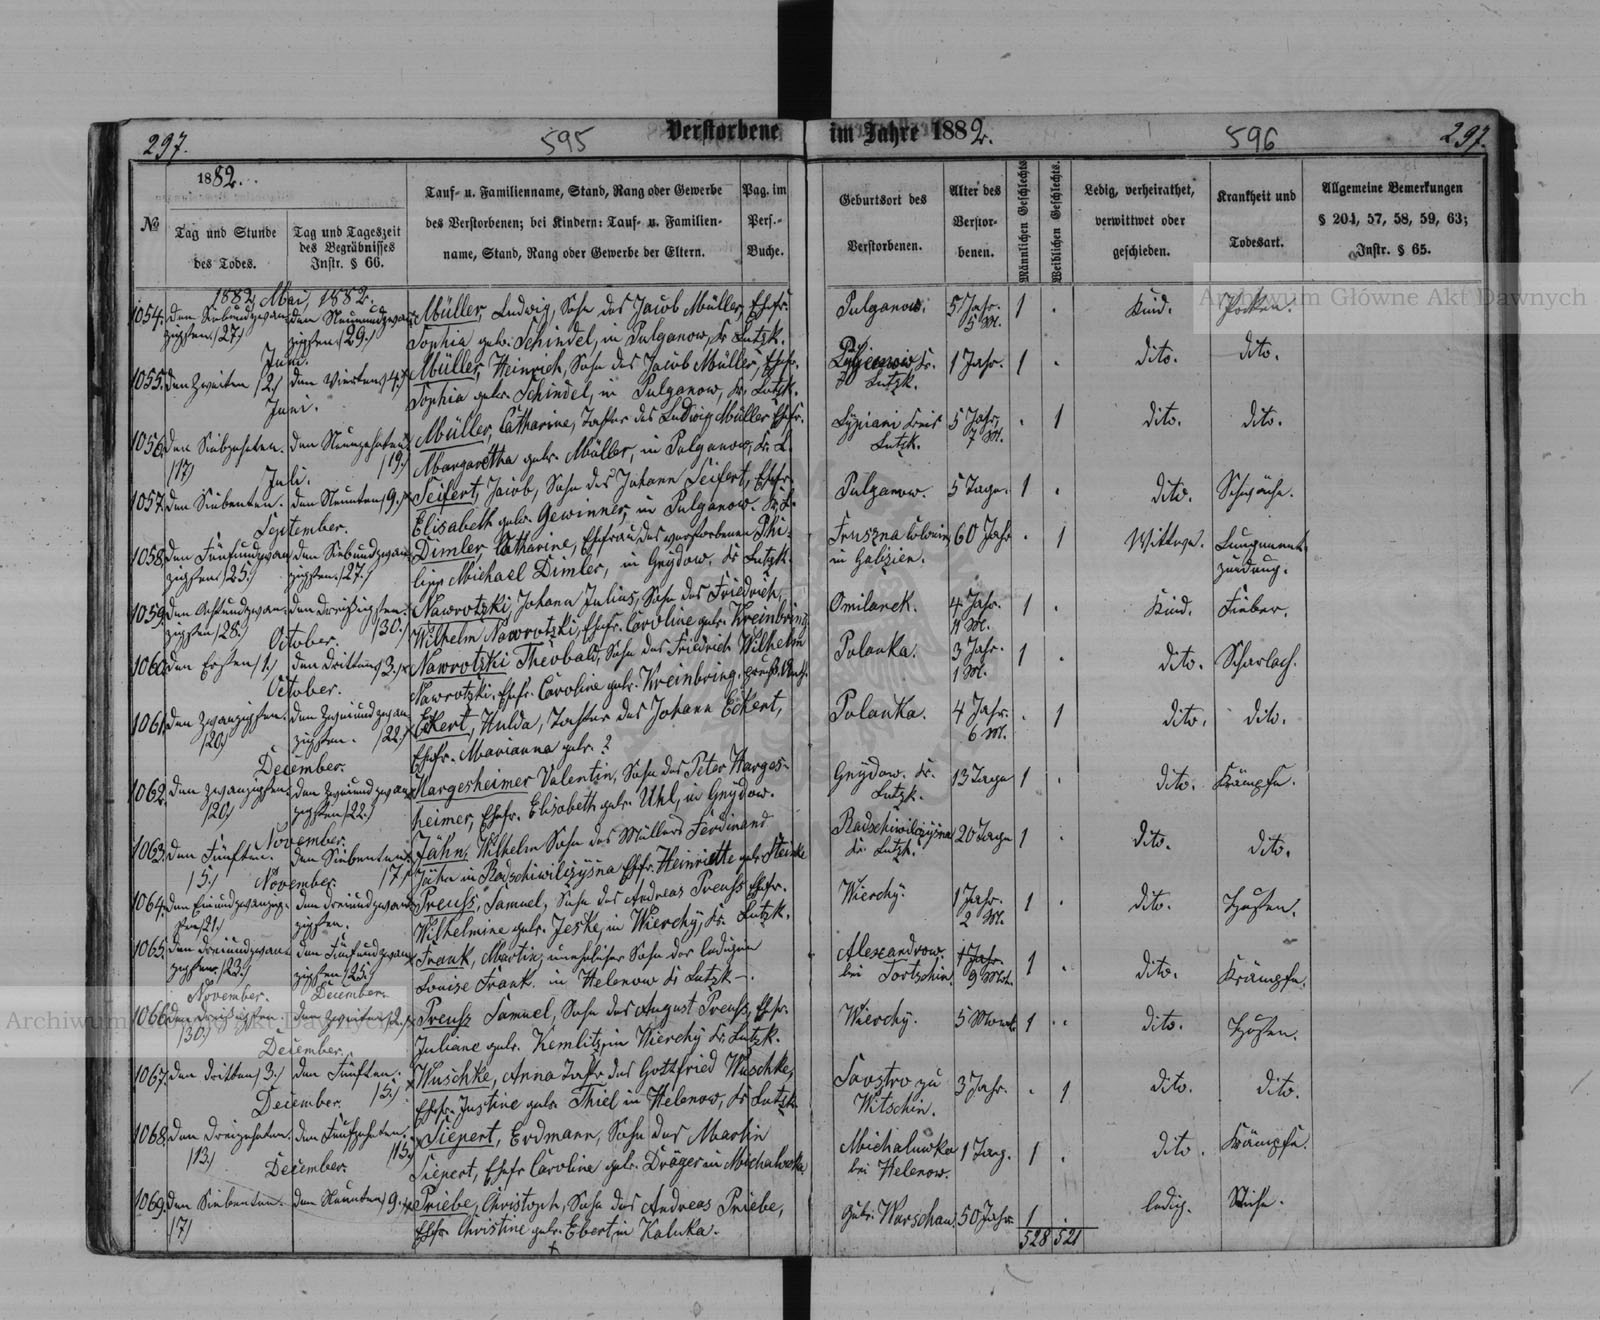 297.
595
Verstorbene im Jahre 1882.
596
297.
1882.
№
Tag und Stunde
des Todes.
Tag und Tageszeit
des Begräbnisses
Instr. § 66.
Tauf- u. Familienname, Stand, Rang oder Gewerbe
des Verstorbenen; bei Kindern: Tauf- u. Familien-
name, Stand, Rang oder Gewerbe der Eltern.
Pag. im
Pers.-
Buche.
Geburtsort des
Verstorbenen.
Alter des
Verstor-
benen.
Männlichen Geschlechts
Weiblichen Geschlechts.
Ledig, verheirathet,
verwittwet oder
geschieden.
Krankheit und
Todesart.
Allgemeine Bemerkungen
§ 204, 57, 58, 59, 63;
Instr. § 65.
Archiwum Główne Akt Dawnych
1882, Mai, 1882.
1054. den Siebenundzwan- den Neunundzwan- Müller, Ludwig, Sohn des Jacob Müller, Ehefr. Pulganow. 5 Jahr. 1 . Kind. Pocken.
zigsten /27/ zigsten /29./ Sophia geb. Schindel, in Pulganow, Kr. Lutzk. 5 M.
Juni.
1055. den Zweiten /2/ den Vierten /4./ Müller, Heinrich, Sohn des Jacob Müller, Ehefr. Kr. 1 Jahr. 1 . dito. dito.
Sophia geb. Schindel, in Pulganow, Kr. Lutzk. Lutzk.
Juni.
1056. den Siebzehnten. den Neunzehnten. Müller, Catharine, Tochter des Ludwig Müller Ehefr. Lypiani Kreis 5 Jahr, . 1 dito. dito.
/17/ /19./ Margaretha geb. Müller, in Pulganow, Kr. L. Lutzk. 7 M.
Juli.
1057. den Siebenten. den Neunten /9./ Seifert, Jacob, Sohn des Johann Seifert, Ehefr. Pulganow. 5 Tage. 1 . dito. Schwäche.
Elisabeth geb. Gewinner, in Pulganow. Kr. L.
September.
1058. den Fünfundzwan- den Siebundzwan- Dimler, Catharine, Ehefrau des verstorbenen Phi- 60 Jahr . 1 Wittwe. Lungenent-
zigsten /25./ zigsten /27./ lipp Michael Dimler, in Gnydow, Kr. Lutzk. in Galizien. zündung.
1059. den Achtundzwan- den Dreißigsten. Nawrotzki, Johann Julius, Sohn des Friedrich, Omilanek. 4 Jahr. 1 . Kind. Fieber.
zigsten /28./ /30./ Wilhelm Nawrotzki, Ehefr. Caroline geb. Kreinbring. M.
October.
1060. den Ersten /1./ den Dritten /3./ Nawrotzki Theobald, Sohn des Friedrich Wilhelm Polanka. 3 Jahr. 1 . dito. Scharlach.
Nawrotzki, Ehefr. Caroline geb. Kreinbring, 1 M.
October.
1061. den Zwanzigsten. den Zweiundzwan- Eckert, Hulda, Tochter des Johann Eckert, Polanka. 4 Jahr. . 1 dito. dito.
/20/ zigsten. /22./ Ehefr. Marianna geb. ? 6 M.
December.
1062. den Zwanzigsten. den Zweiundzwan- Hargesheimer Valentin, Sohn des Peter Harges- Gnydow. Kr. 13 Tage 1 . dito. Krämpfe.
/20/ zigsten /22./ heimer, Ehefr. Elisabeth geb. Uhl, in Gnydow. Lutzk.
November.
1063. den Fünften. den Siebenten. Jähn, Wilhelm Sohn des Müllers Ferdinand Radschiwilizysna 20 Tage 1 . dito. dito.
/5./ /7./ Jähn in Radschiwilizysna Ehefr. Heinriette geb. Steinke Kr. Lutzk.
November.
1064. den Einundzwanzig- den Dreiundzwan- Preuss, Samuel, Sohn des Andreas Preuss Ehefr. Wierchy. 1 Jahr. 1 . dito. Husten.
sten /21./ zigsten. Wilhelmine geb. Jeske, in Wierchy, Kr. Lutzk. 2 M.
1065. den Dreiundzwan- den Fünfundzwan- Frank, Martin, unehelicher Sohn der ledigen Alexandrow. Jahr. 1 . dito. Krämpfe.
zigsten /23./ zigsten /25./ Louise Frank. in Helenow Kr Lutzk —. bei Tortschin. 9 Mt.
November. December.
1066. den Dreißigsten den Zweiten /2./ Preuss Samuel, Sohn des August Preuss, Ehefr. Wierchy. 5 Monat 1 . . dito. Husten.
/30./ Juliane geb. Kemlitz, in Wierchy Kr. Lutzk.
December.
1067. den Dritten /3./ den Fünften. Wuschke, Anna Tocht. des Gottfried Wuschke, zu 3 Jahr. . 1 dito. dito.
/5./ Ehefr. Justine geb. Thiel in Helenow, Kr Lutzk Witschin.
December.
1068. den Dreizehnten. den Fünfzehnten. Siepert, Erdmann, Sohn des Martin Michaluwka 1 Tag. 1 . dito. Krämpfe.
/13./ /15./ Siepert, Ehefr Caroline geb. Dräger in Michaluwka. bei Helenow.
December.
1069. den Siebenten. den Neunten /9./ Priebe, Christoph, Sohn des Andreas Priebe, Warschau 50 Jahr 1 . ledig.
/7/ Ehefr. Christine geb. Ebert, in Kaluka.
528 521
Archiwum Główne Akt Dawnych